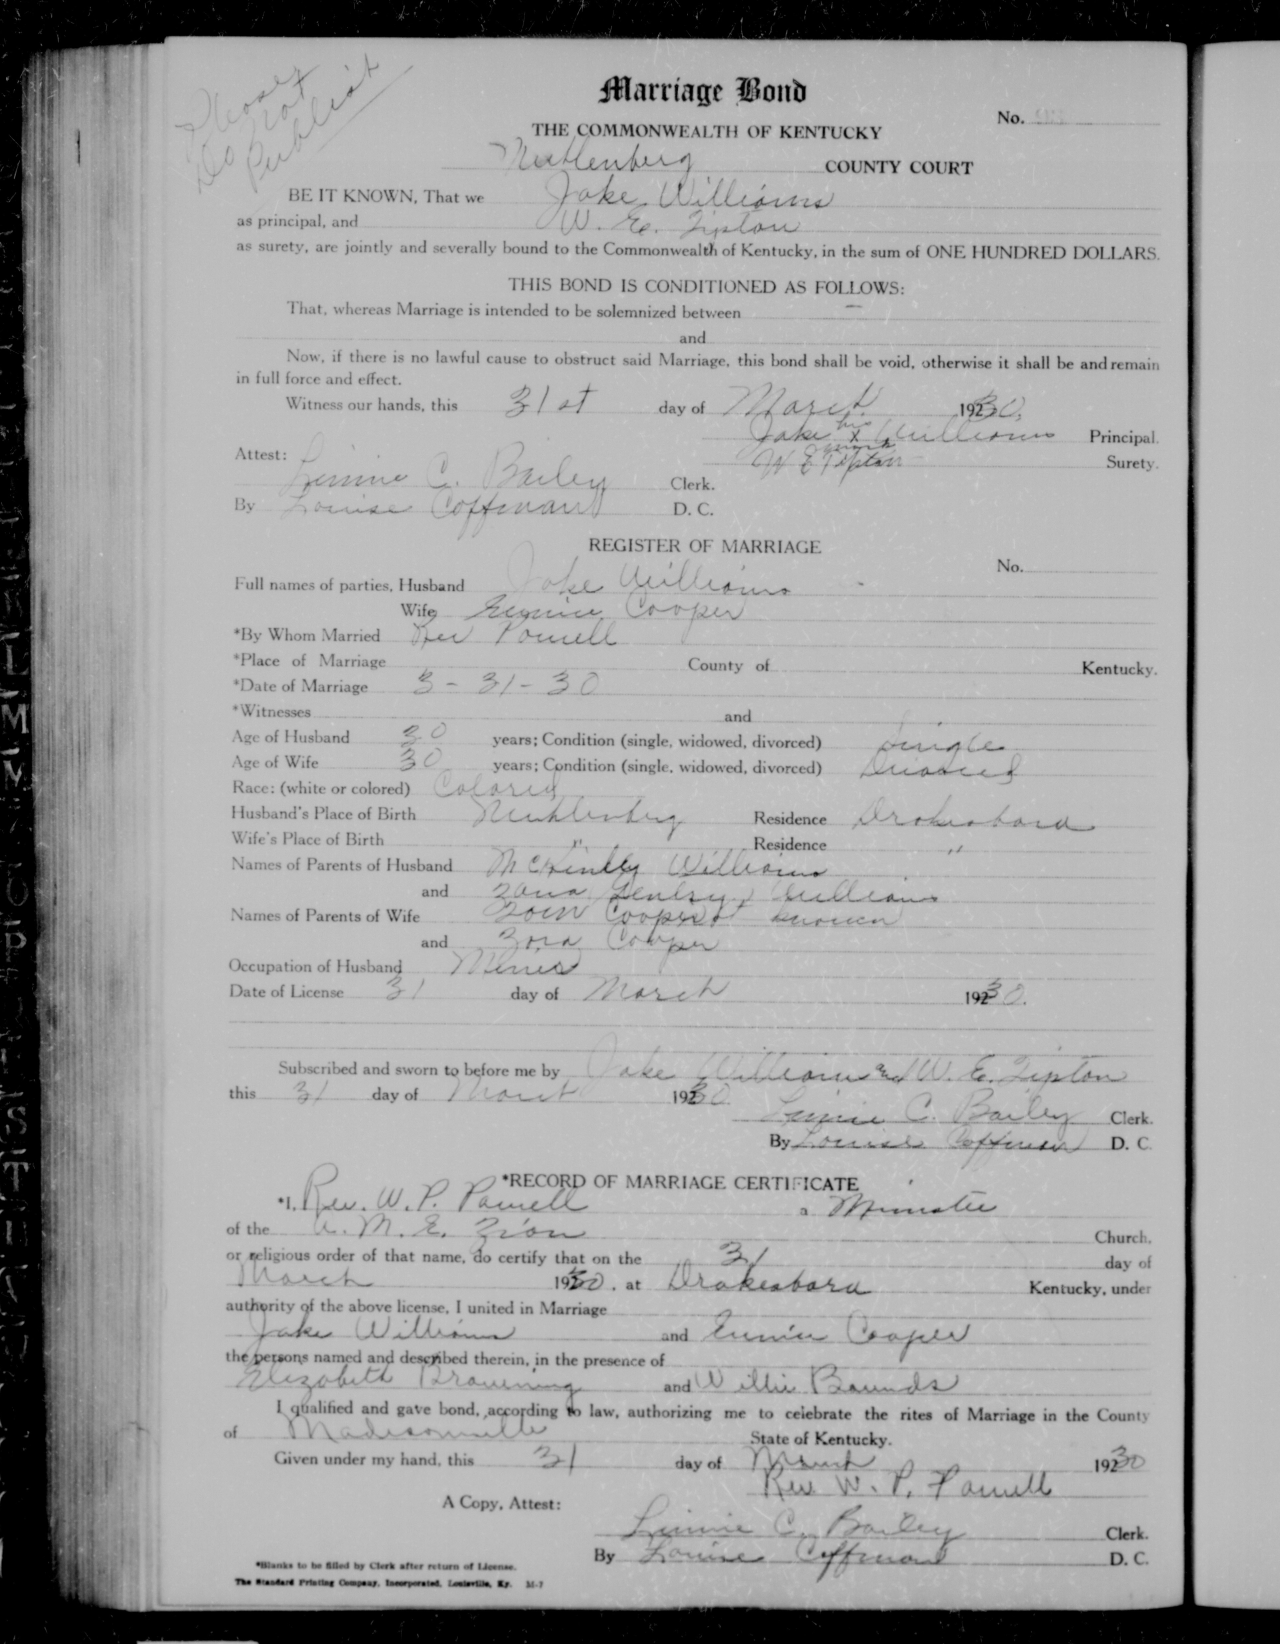 Please
Do not
Publish
Marriage Bond
No.
THE COMMONWEALTH OF KENTUCKY
Muhlenberg COUNTY COURT
BE IT KNOWN, That we Jake Williams
as principal, and W. E. Tipton
as surety, are jointly and severally bound to the Commonwealth of Kentucky, in the sum of ONE HUNDRED DOLLARS.
THIS BOND IS CONDITIONED AS FOLLOWS:
That, whereas Marriage is intended to be solemnized between
and
Now, if there is no lawful cause to obstruct said Marriage, this bond shall be void, otherwise it shall be and remain
in full force and effect.
Witness our hands, this 31st day of March 1930.
Jake his x mark Williams Principal.
Attest: W E Tipton Surety.
Linnie C. Bailey Clerk.
By Louise Coffman D. C.
REGISTER OF MARRIAGE
No.
Full names of parties, Husband Jake Williams
Wife Eunice Cooper
*By Whom Married Rev Powell
*Place of Marriage County of Kentucky.
*Date of Marriage 3-31-30
*Witnesses and
Age of Husband 30 years; Condition (single, widowed, divorced) Single
Age of Wife 30 years; Condition (single, widowed, divorced) Divorced
Race: (white or colored) Colored
Husband's Place of Birth Muhlenberg Residence Drakesboro
Wife's Place of Birth " Residence "
Names of Parents of Husband McKinley Williams
and Gentry Williams
Names of Parents of Wife Cooper
and Zora Cooper
Occupation of Husband Miner
Date of License 31 day of March 1930.
Subscribed and sworn to before me by Jake Williams and W. E. Tipton
this 31 day of March 1930
Linnie C. Bailey Clerk.
By Louise Coffman D. C.
*RECORD OF MARRIAGE CERTIFICATE
*I, Rev. W. P. Powell a Minister
of the A. M. E. Zion Church,
or religious order of that name, do certify that on the 31 day of
March 1930, at Drakesboro Kentucky, under
authority of the above license, I united in Marriage
Jake Williams and Eunice Cooper
the persons named and described therein, in the presence of
Elizabeth Browning and Willie Bounds
I qualified and gave bond, according to law, authorizing me to celebrate the rites of Marriage in the County
of Madisonville State of Kentucky.
Given under my hand, this 31 day of March 1930
Rev W. P. Powell
A Copy, Attest:
Linnie C. Bailey Clerk.
By Louise Coffman D. C.
*Blanks to be filled by Clerk after return of License.
The Standard Printing Company, Incorporated, Louisville, Ky. M-7